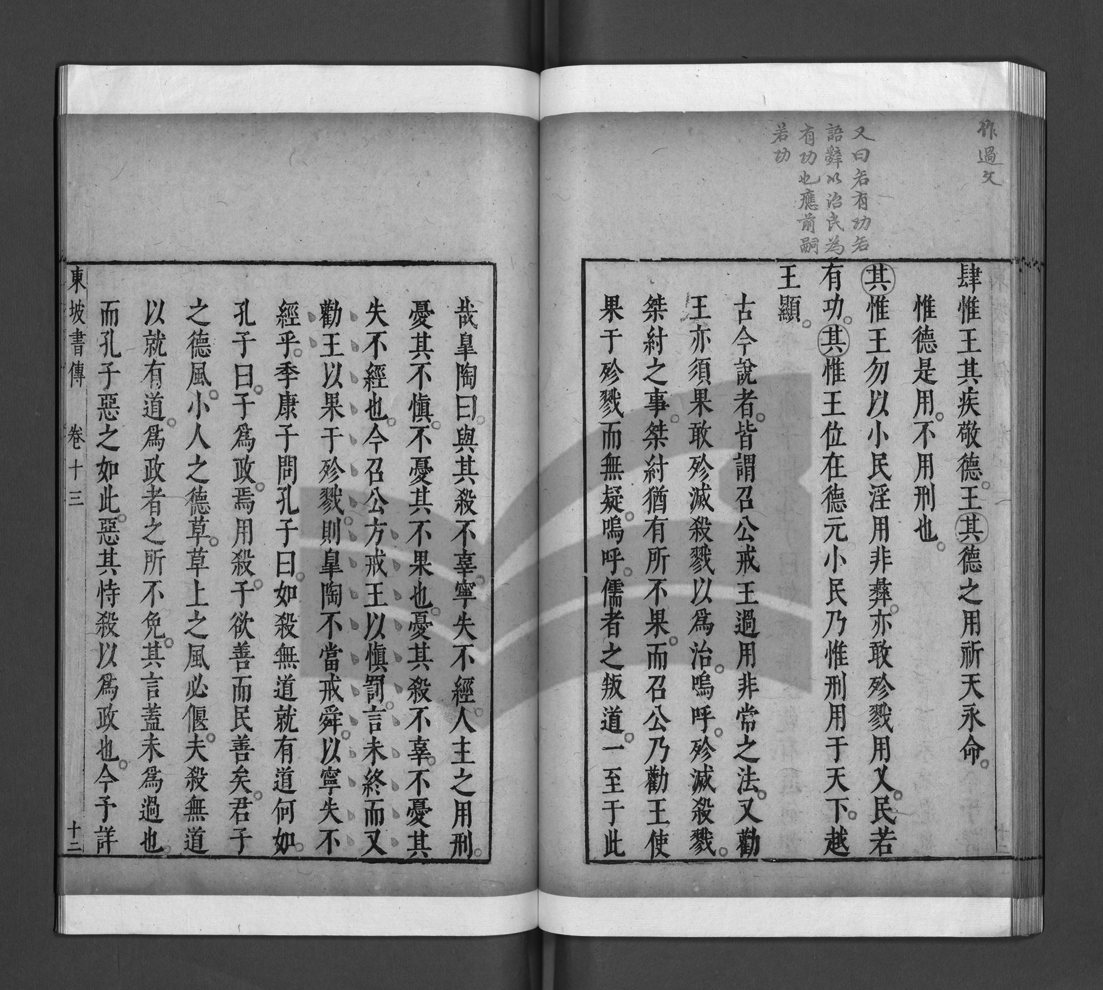 作過文
又曰若有功若
語辭以治民為
有功也應前嗣
若功
肆惟王其疾敬德。王其德之用祈天永命。
惟德是用。不用刑也。
其惟王勿以小民淫用非彝。亦敢殄戮用乂。民若
有功。其惟王位在德元小民乃惟刑用于天下。越
王顯。
古今說者。皆謂召公戒王過用非常之法。又勸
王亦須果敢殄滅殺戮以爲治。嗚呼。殄滅殺戮。
桀紂之事。桀紂猶有所不果。而召公乃勸王使
果于殄戮而無疑。嗚呼。儒者之叛道。一至于此
哉皐陶曰。與其殺不辜。寧失不經。人主之用刑。
憂其不慎。不憂其不果也。憂其殺不辜。不憂其
失不經也。今召公方戒王以慎罰。言未終而又
勸王以果于殄戮。則皐陶不當戒舜。以寧失不
經乎。季康子問孔子曰。如殺無道就有道何如。
孔子曰。子爲政。焉用殺。子欲善而民善矣。君子
之德風。小人之德草。草上之風必偃。夫殺無道
以就有道。爲政者之所不免。其言蓋未爲過也。
而孔子惡之如此。惡其恃殺以爲政也。今予詳
東坡書傳 卷十三 十二